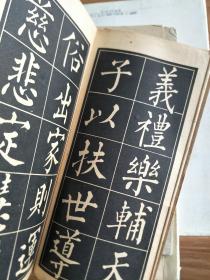 義禮樂輔天
子以扶世導
俗出家則運
慈悲定